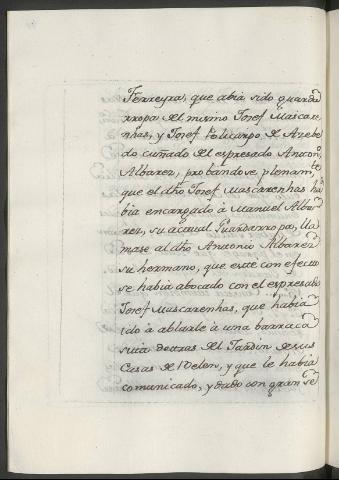 Ferreyra, que abia sido guarda
rropa del mismo Josef Mascare-
ñhas, y Josef Policarpo de Azebe
do cuñado del espresado Anton.º
Albarez, probandose plenam.te
que el dho Josef Mascarenhas ha
bia encargado à Manuel Alba
rez, su actual Guardarropa, lla
mase al dho Antonio Albarez
su hermano, que este con efecto
se habia abocado con el espresado
Josef Mascarenhas, que habia
ido à ablarle à una barraca
sita detras del Jardin de sus
Casas de Belen, y que le habia
comunicado, y dado con gran se